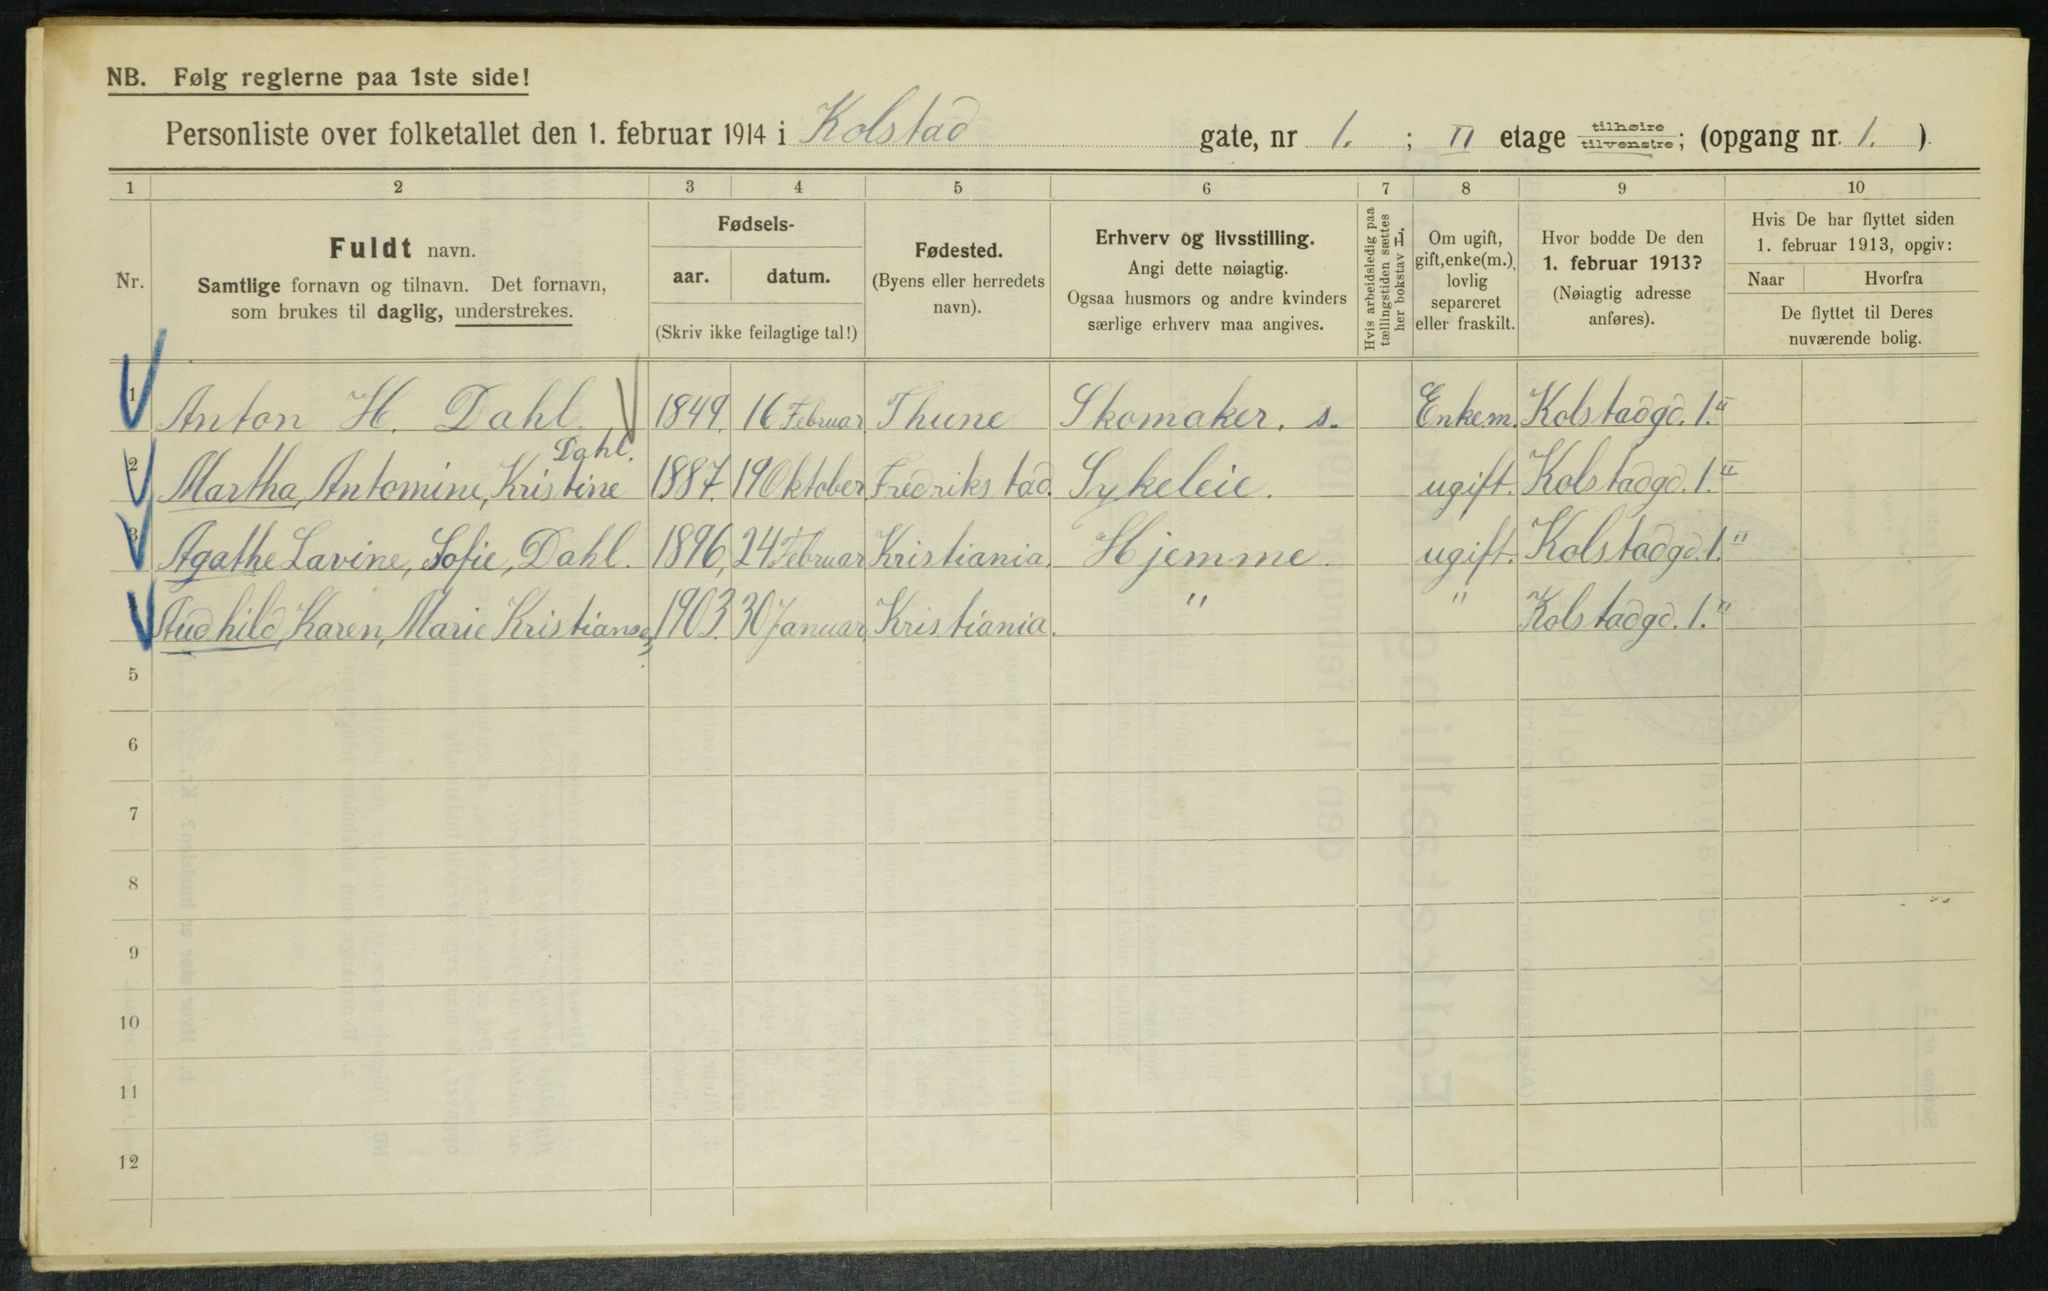 NB. Følg reglerne paa 1ste side!
Personliste over folketallet den 1. februar 1914 i Kolstad gate, nr 1. ; II etage tilhøire tilvenstre; (opgang nr. 1. )
1 2 3 4 5 6 7 8 9 10
Nr.
Fuldt navn.
Samtlige fornavn og tilnavn. Det fornavn,
som brukes til daglig, understrekes.
Fødsels-
aar. datum.
(Skriv ikke feilagtige tal!)
Fødested.
(Byens eller herredets
navn).
Erhverv og livsstilling.
Angi dette nøiagtig.
Ogsaa husmors og andre kvinders
særlige erhverv maa angives.
Hvis arbeidsledig paa
tællingstiden sættes
her bokstav L.
Om ugift,
gift, enke(m.),
lovlig
separeret
eller fraskilt.
Hvor bodde De den
1. februar 1913?
(Nøiagtig adresse
anføres).
Hvis De har flyttet siden
1. februar 1913, opgiv:
Naar Hvorfra
De flyttet til Deres
nuværende bolig.
1 Anton H. Dahl. 1849. 16 Februar. Thune Skomaker. s. Enkem. Kolstadgd. 1. II
Dahl.
2 Martha, Antomine, Kristine 1887. 19 Oktober Fredrikstad. Sykeleie. ugift. Kolstadgd. 1. II
3 Agathe Lavine, Sofie, Dahl. 1896, 24 Februar Kristiania. Hjemme. ugift. Kolstadgd. 1. "
Audhild, Karen, Marie Kristiansen 1903. 30 Januar Kristiania. " " Kolstadgd. 1. "
5
6
7
8
9
10
11
12